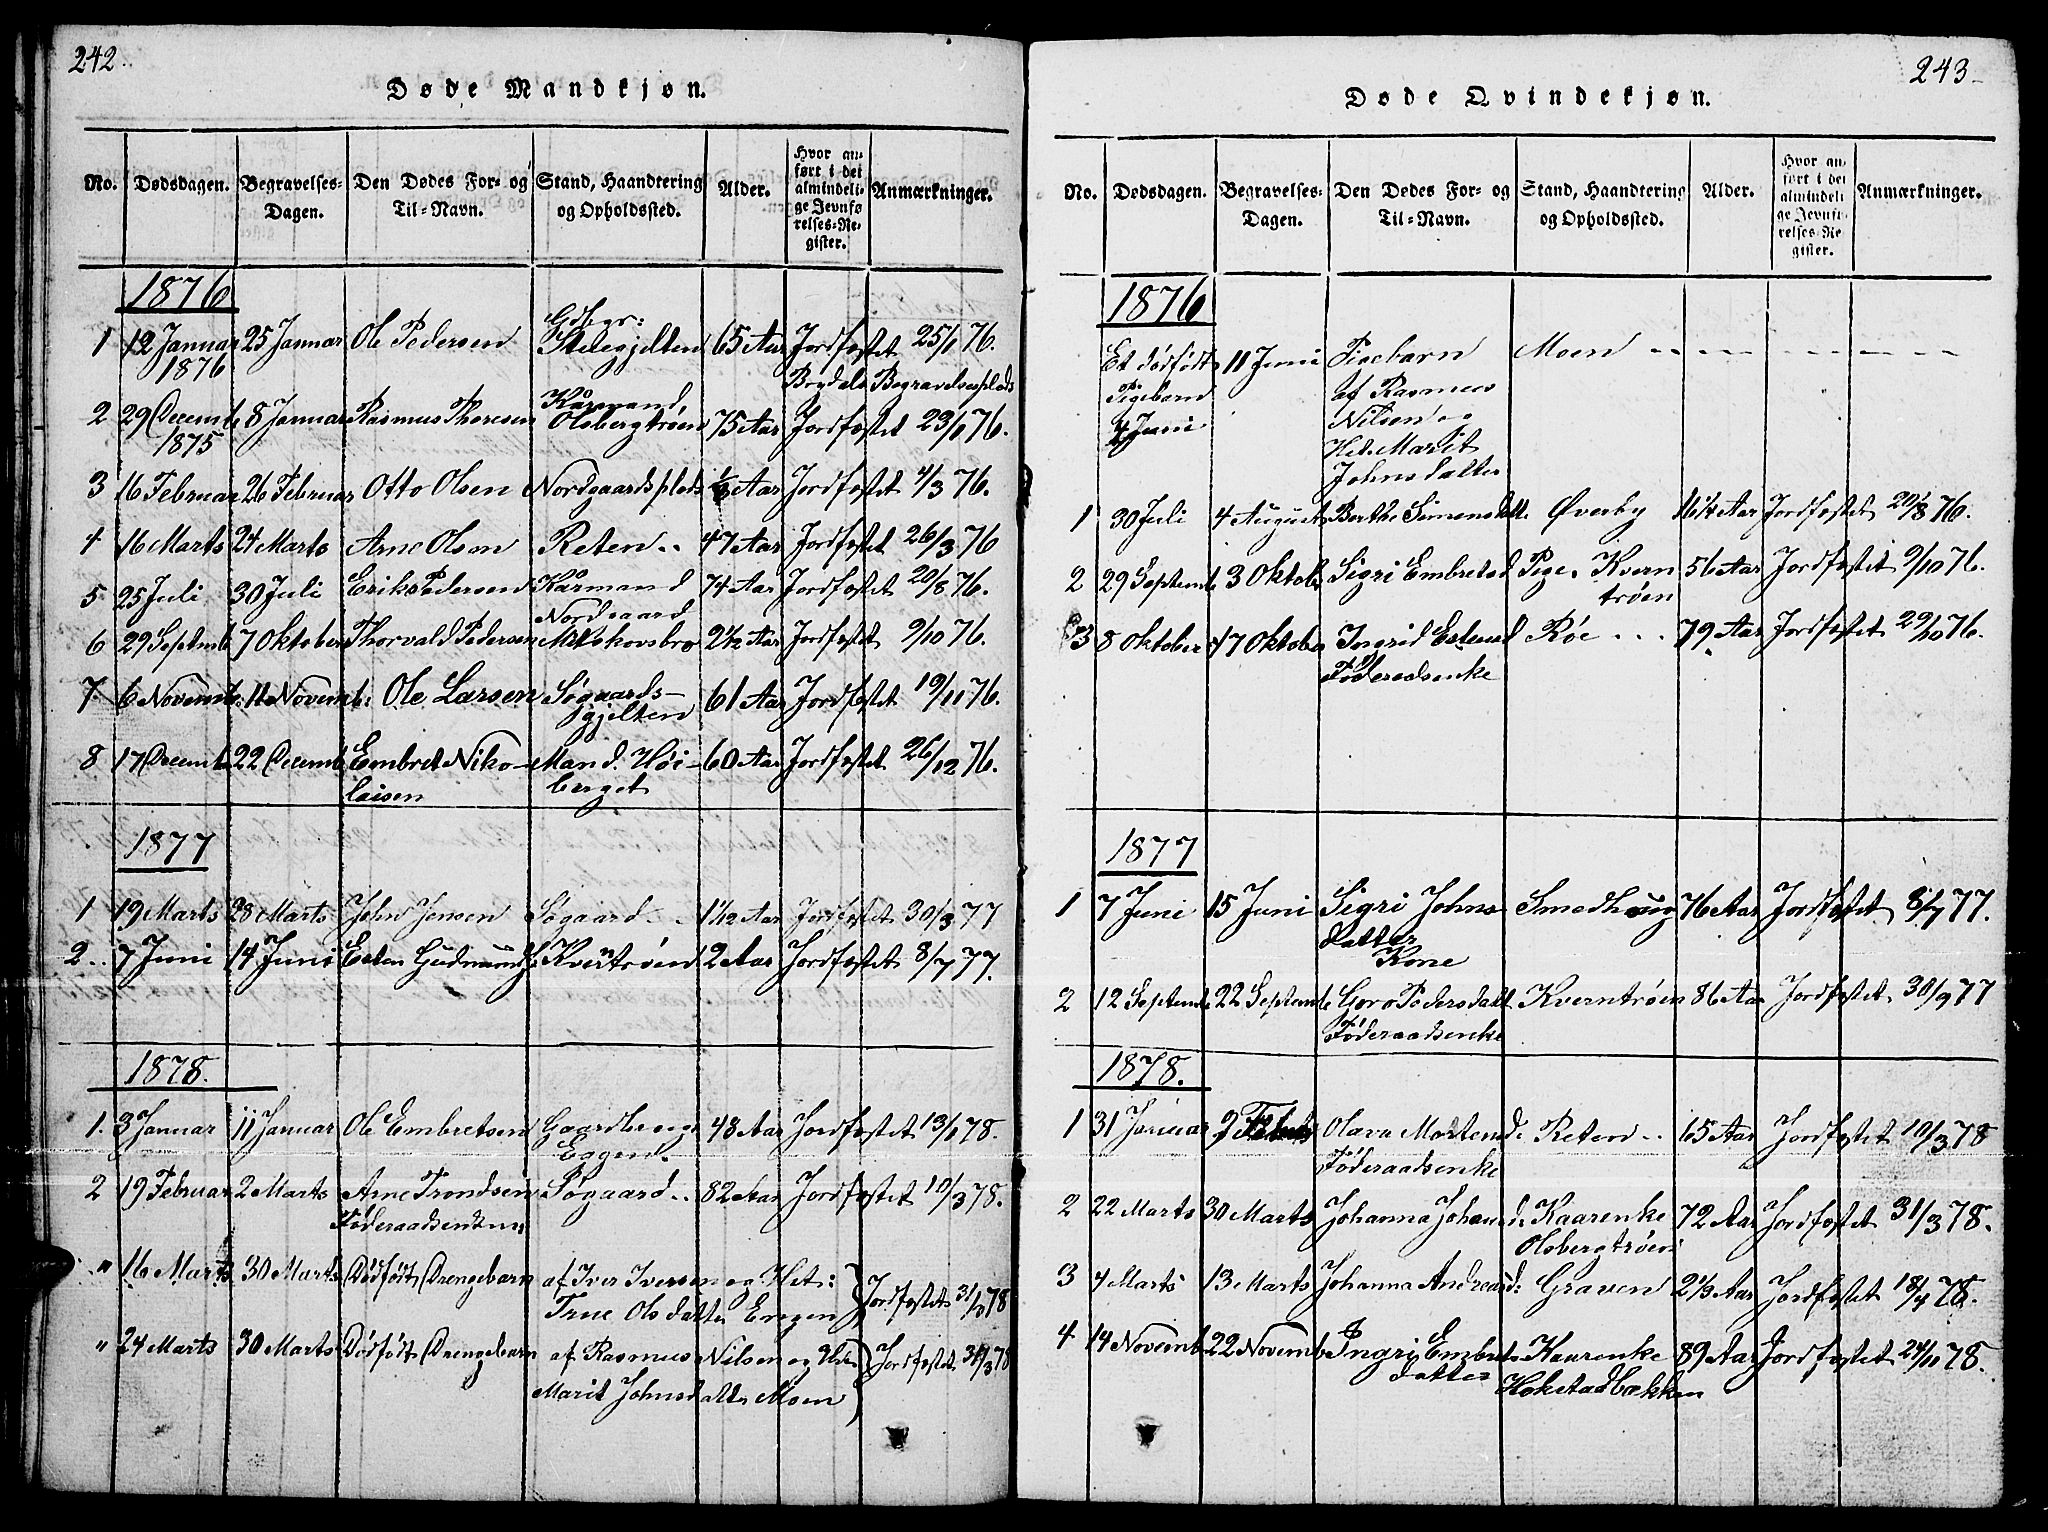 242.
Døde Mandkjøn.
No. Dødsdagen. Begravelses-Dagen. Den Dødes For- og Til-Navn. Stand, Haandtering og Opholdssted. Alder. Hvor anført i det almindelige Jevnførelses-Register. Anmærkninger.
1876
1 12 Januar 1876 25 Januar Ole Pedersen Gdbgr: Stuegjelten 65 Aar Jordfæstet 25/1 76.
Brydals Begravelsesplads
2 29 Decemb 1875 8 Januar Rasmus Thoresen Kårmand Olsbergtrøen 75 Aar Jordfæstet 23/1 76.
3 16 Februar 26 Februar Otto Olsen Nordgaardsplads Aar Jordfæstet 4/3 76.
4 16 Marts 24 Marts Arne Olsen Reten .. 47 Aar Jordfæstet 26/3 76
5 25 Juli 30 Juli Erik Pedersen Kårmand Nordgaard 74 Aar Jordfæstet 20/8 76.
6 29 Septemb 7 Oktober Thorvald Pedersen Melskovsbro 2 1/2 Aar Jordfæstet 9/10 76.
7 6 Novemb: 11 Novemb: Ole Larsen Søgaards-gjelten 61 Aar Jordfæstet 19/11 76.
8 17 Decemb 22 Decemb Embret Niko-laisen Mand. Høi-berget 60 Aar Jordfæstet 26/12 76.
1877
1 19 Marts 28 Marts John Jensen Søgaard .. 1 1/12 Aar Jordfæstet 30/3 77
2.. 7 Juni 14 Juni Esten Gudmunds Kverntrøen 2 Aar Jordfæstet 8/7 77.
1878.
1. 3 Januar 11 Januar Ole Embretsen Gaardbruger Eggen. 48 Aar Jordfæstet 13/1 78.
2 19 Februar 2 Marts Arne Trondsen Føderaadsenkem Søgaard .. 82 Aar Jordfæstet 10/3 78.
" 16 Marts 30 Marts Dødfødt Drengebarn af Iver Iversen og Het: Trne Olsdatter Eregen Jordfæstet 31/3 78
" 24 Marts 30 Marts Dødfødt Drengebarn af Rasmus Nilsen og Hu: Marit Johnsdatter Moen Jordfæstet 31/3 78
243
Døde Qvindekjøn.
No. Dødsdagen. Begravelses-Dagen. Den Dødes For- og Til-Navn. Stand, Haandtering og Opholdssted. Alder. Hvor anført i det almindelige Jevnførelses-Register. Anmærkninger.
1876
Et dødfødt Pigebarn 4 Juni 11 Juni Pigebarn af Rasmus Nilsen og Het. Marit Johnsdatter Moen
1 30 Juli 4 August Berthe Simensdatt. Øverby 16 1/4 Aar Jordfæstet 20/8 76.
2 29 Septemb 3 Oktob Sigri Embretsd Pige. Kverntrøen 56 Aar Jordfæstet 9/10 76.
3 8 Oktober 17 Oktober Ingrid Estensd Føderaadsenke Røe ... 79 Aar Jordfæstet 29/10 76.
1877
1 7 Juni 15 Juni Sigri Johnsdatter Kone Smedhaug 76 Aar Jordfæstet 8/7 77.
2 12 Septemb 22 Septemb Goro Pedersdatt. Føderaadsenke Kverntrøen 86 Aar Jordfæstet 30/9 77
1878.
1 31 Januar 9 Februar Olava Mortensd. Føderaadsenke Reten .. 65 Aar Jordfæstet 10/3 78
2 22 Marts 30 Marts Johanna Johansd. Kaarenke Olsbergtrøen 72 Aar Jordfæstet 31/3 78.
3 4 Marts 13 Marts Johanna Andreasd: Graven 2 1/3 Aar Jordfæstet 18/4 78.
4 14 Novemb 22 Novemb Ingri Embrets datter Kaarenke Hokstadbækken 89 Aar Jordfæstet 24/11 78.